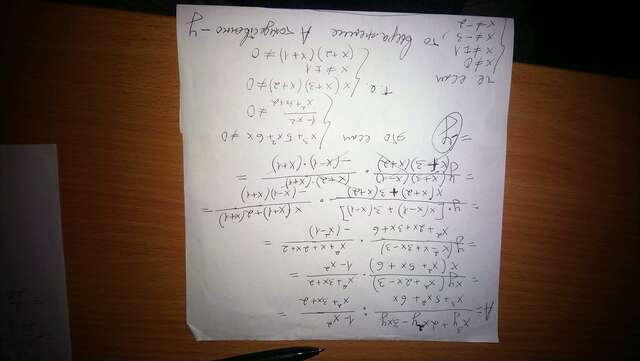 A = (x³y + 2x²y - 3xy)/(x³ + 5x² + 6x) : (1-x²)/(x² + 3x + 2) =
= xy(x² + 2x - 3)/x(x² + 5x + 6) · (x² + 3x + 2)/(1 - x²) =
= y(x² - x + 3x - 3)/(x² + 2x + 3x + 6) · (x² + x + 2x + 2)/(-(x² - 1)) =
= y·[x(x-1) + 3(x-1)]/(x(x+2) + 3(x+2)) · (x(x+1) + 2(x+1))/(-(x-1)(x+1)) =
= y(x+3)(x-1)/((x+3)(x+2)) · (x+2)·(x+1)/(-(x-1)·(x+1)) =
= -y это если { x³ + 5x² + 6x ≠ 0
(1-x²)/(x²+3x+2) ≠ 0
т.е. { x(x+3)(x+2) ≠ 0
x ≠ ±1
(x+2)(x+1) ≠ 0
т.е. если
{ x ≠ 0
x ≠ ±1
x ≠ -3, то выражение A тождественно -y
x ≠ -2